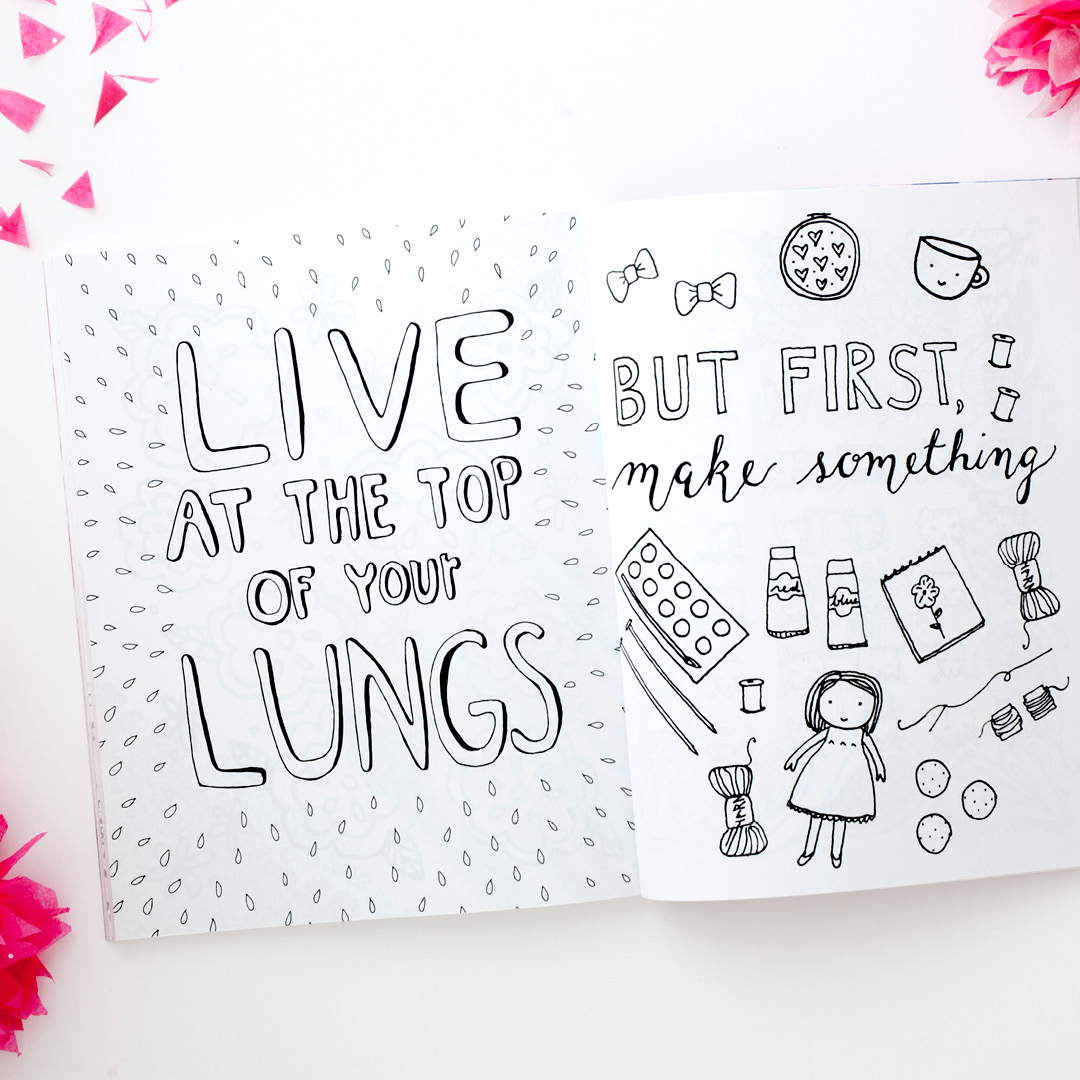 LIVE
AT THE TOP
OF YOUr
LUNGS
BUT FIRST,
make something
red
blue
YARN